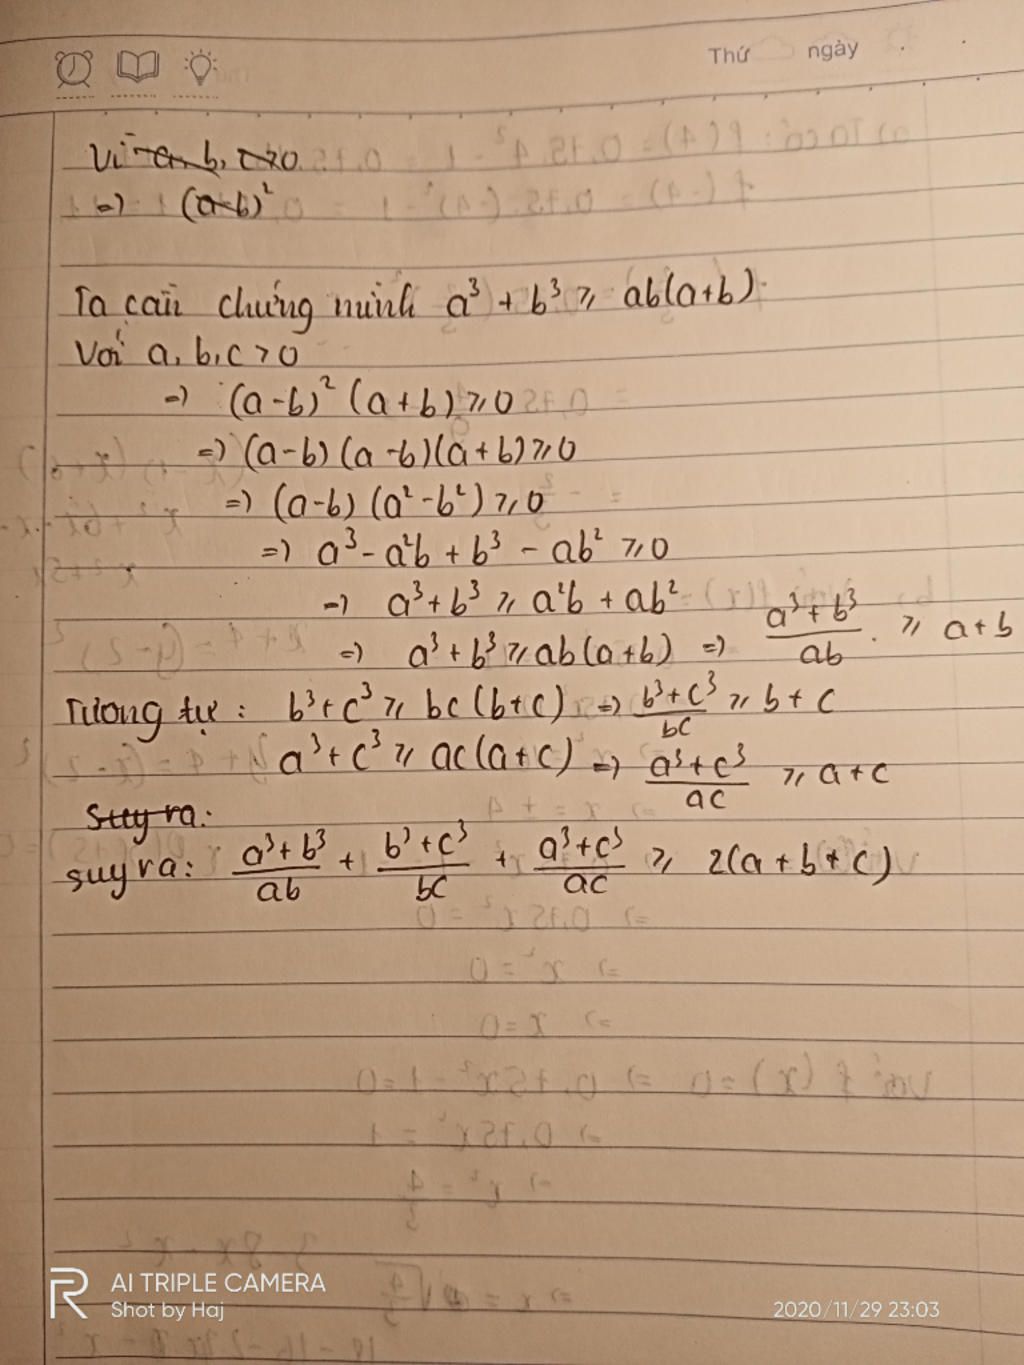 Thứ ngày
Vì a, b, c>0
=) (a-b)²
Ta cần chứng minh a³ + b³ ⩾ ab(a+b)
Với a, b, c > 0
=) (a-b)² (a+b) ⩾ 0
=) (a-b) (a-b)(a+b) ⩾ 0
=) (a-b) (a² - b²) ⩾ 0
=) a³ - a²b + b³ - ab² ⩾ 0
=) a³ + b³ ⩾ a²b + ab²
=) a³ + b³ ⩾ ab(a+b) =) (a³ + b³)/ab ⩾ a+b
Tương tự : b³ + c³ ⩾ bc (b+c) =) (b³ + c³)/bc ⩾ b + c
a³ + c³ ⩾ ac(a+c) =) (a³ + c³)/ac ⩾ a + c
Suy ra:
suy ra: (a³ + b³)/ab + (b³ + c³)/bc + (a³ + c³)/ac ⩾ 2(a + b + c)
AI TRIPLE CAMERA
Shot by Haj
2020/11/29 23:03